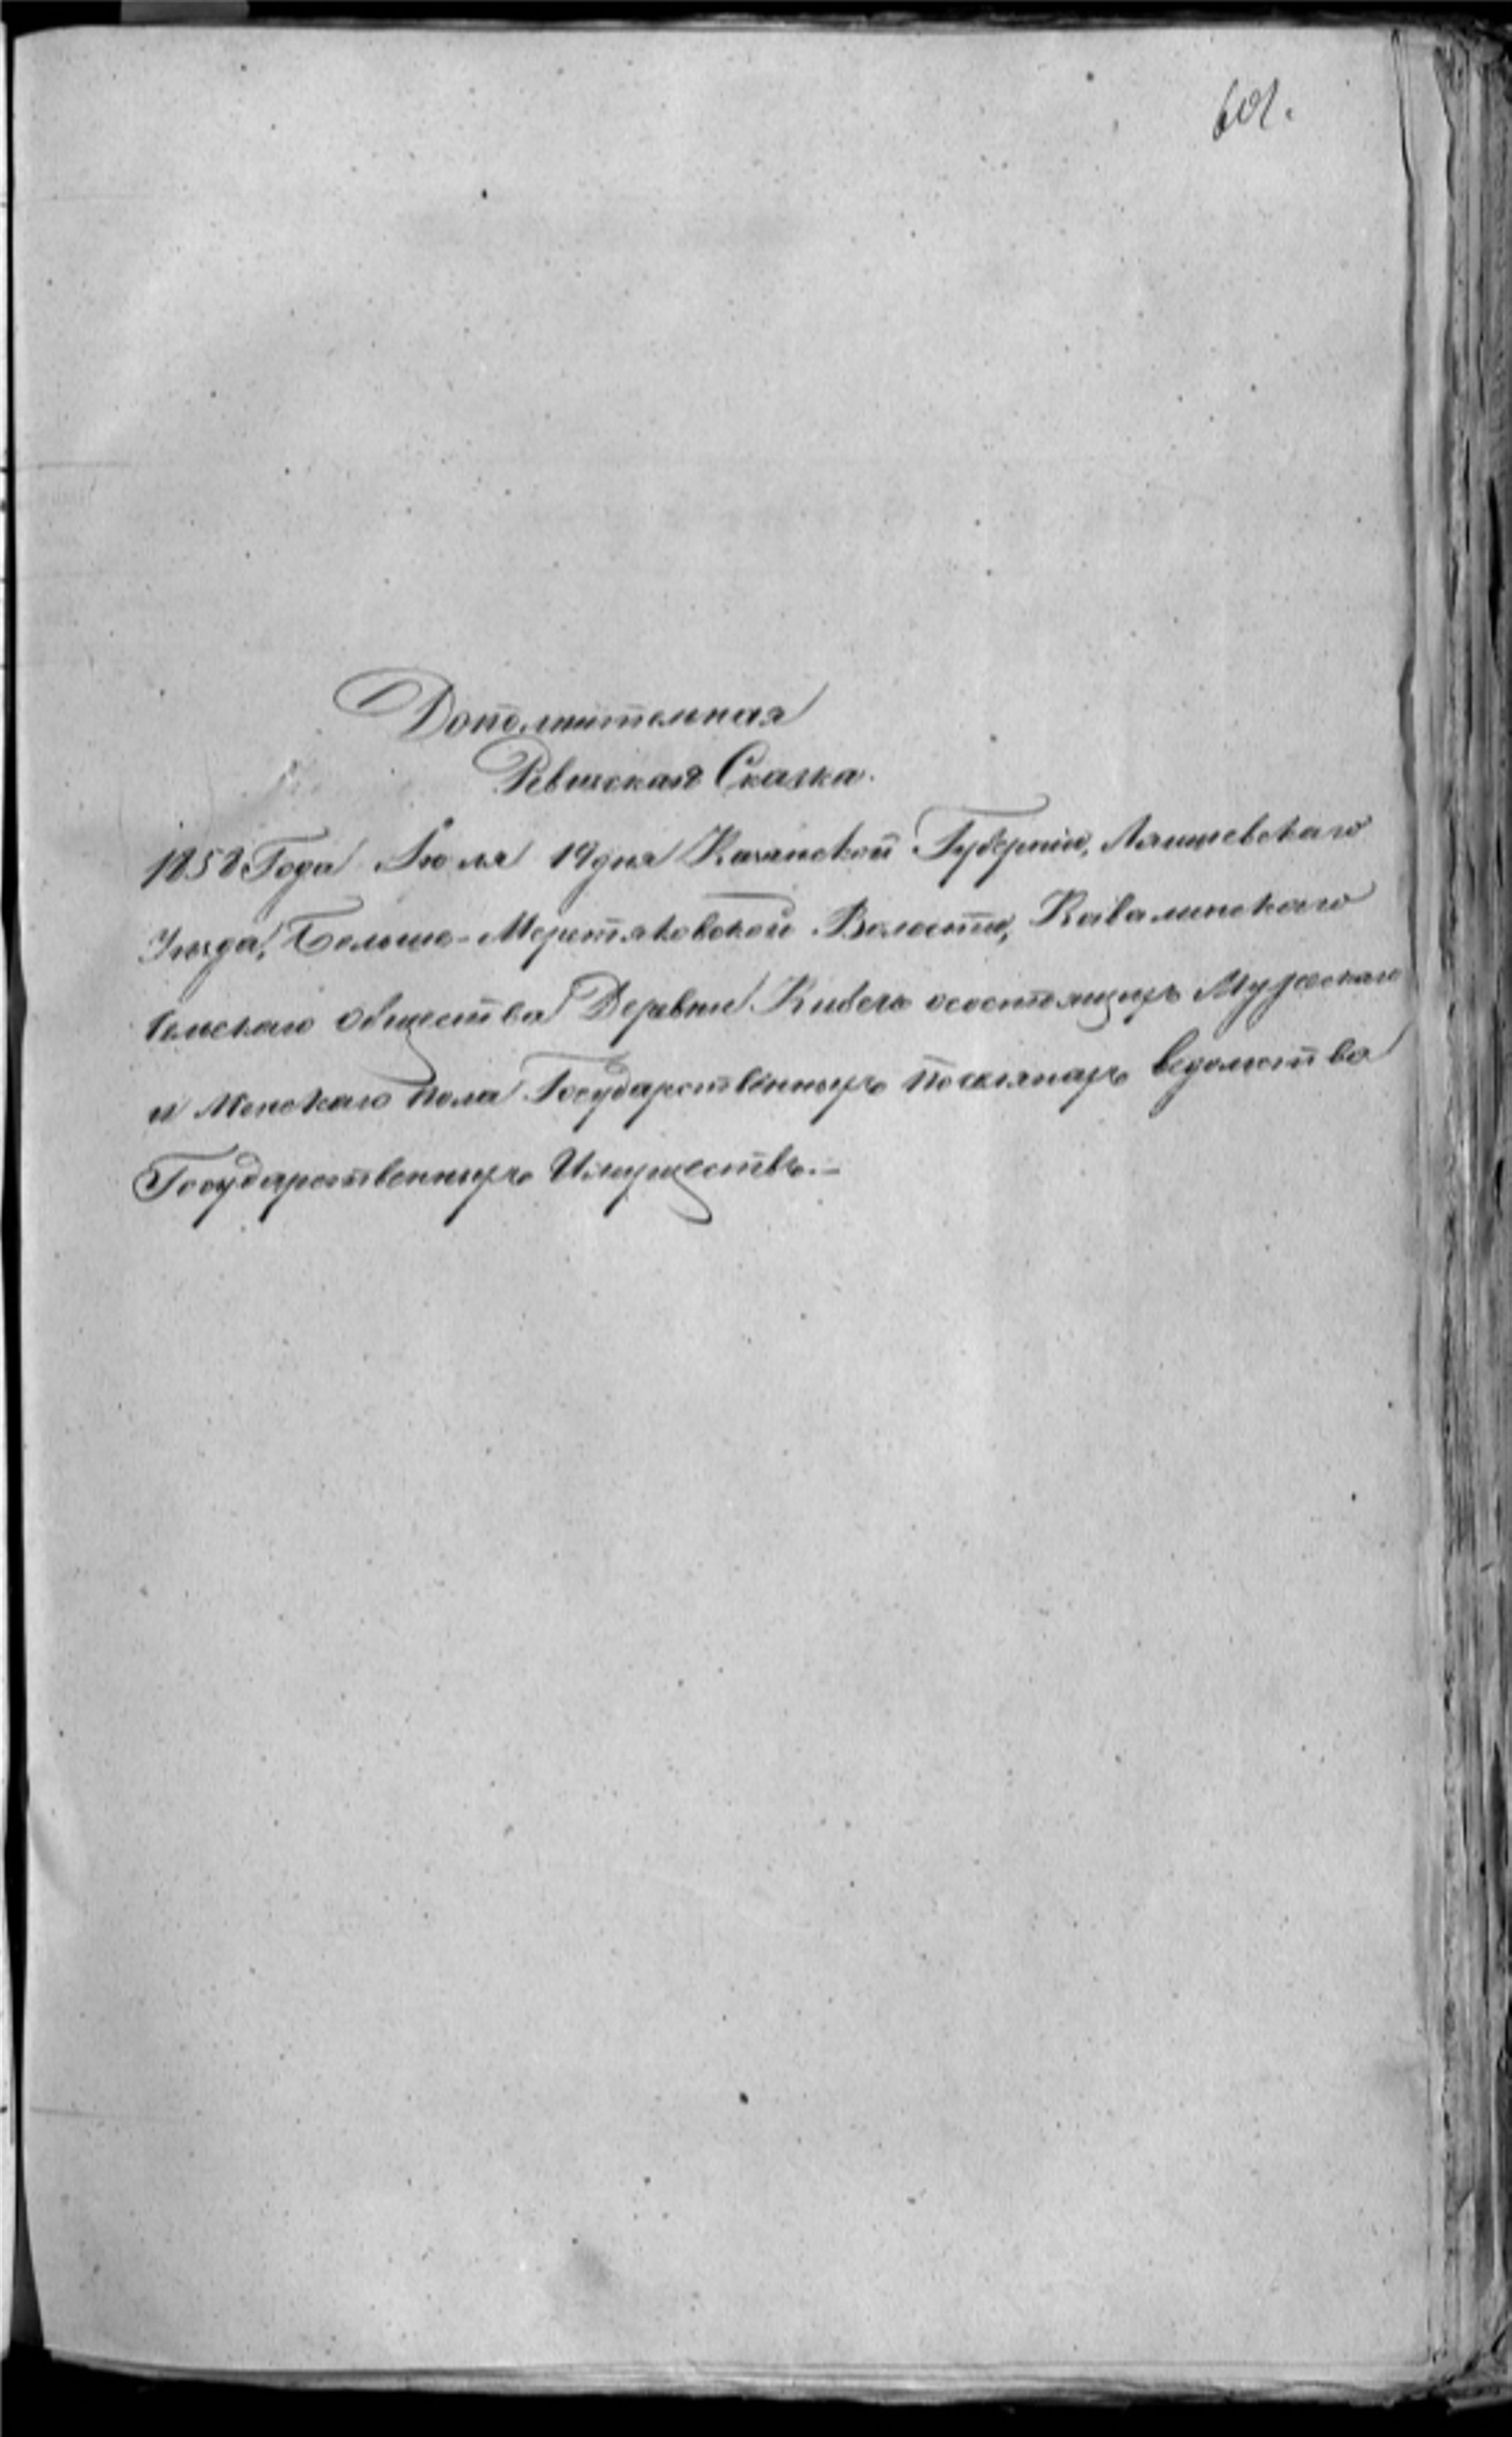 601.
Дополнительная
Ревизская Сказка.
1858 Года Июля 19 дня Казанской Губернiи, Лаишевскаго
Уѣзда, Больше-Меретяковской Волости, Ковалинскаго
Сельскаго общества Деревни осостоящихъ Мужескаго
и Женскаго пола Государственныхъ поселянахъ ведомства
Государственныхъ Имуществъ.-